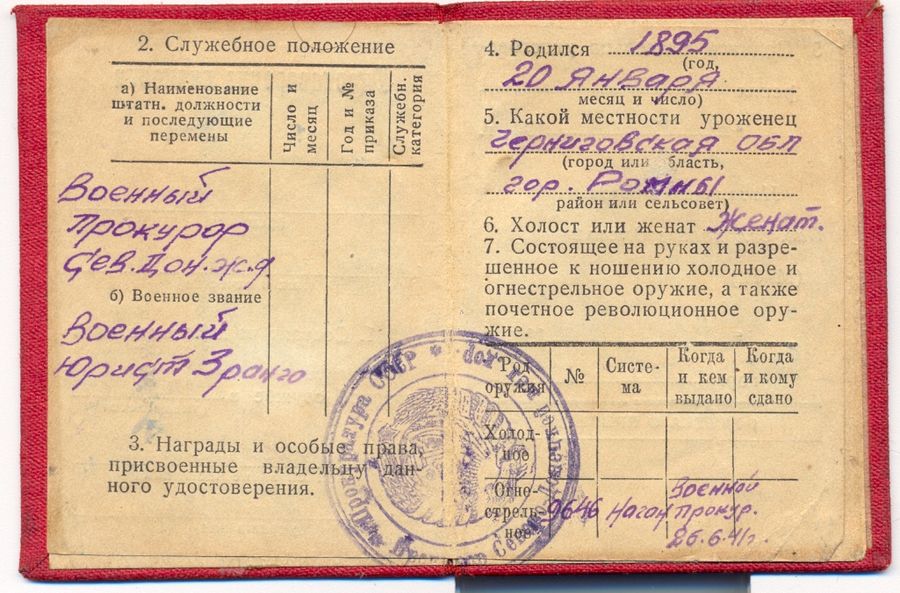 2. Служебное положение
а) Наименование
штатн. должности
и последующие
перемены
Число и
месяц
Год и №
приказа
Служебн.
категория
Военный
Прокурор
Сев. Дон. ж.д
б) Военное звание
Военный
Юрист 3 ранга
3. Награды и особые права,
присвоенные владельцу дан-
ного удостоверения.
4. Родился 1895
(год,
20 Января
месяц и число)
5. Какой местности уроженец
Черниговская обл
(город или бласть,
гор. Ромны
район или сельсовет)
6. Холост или женат Женат.
7. Состоящее на руках и разре-
шенное к ношению холодное и
огнестрельное оружие, а также
почетное революционное ору-
жие.
Род
оружия
№
Систе-
ма
Когда
и кем
выдано
Когда
и кому
сдано
Холод-
ное
Огне-
стрель-
ное
9646
Наган
Военной
Прокур.
26.6.41г.
Прокуратура СССР